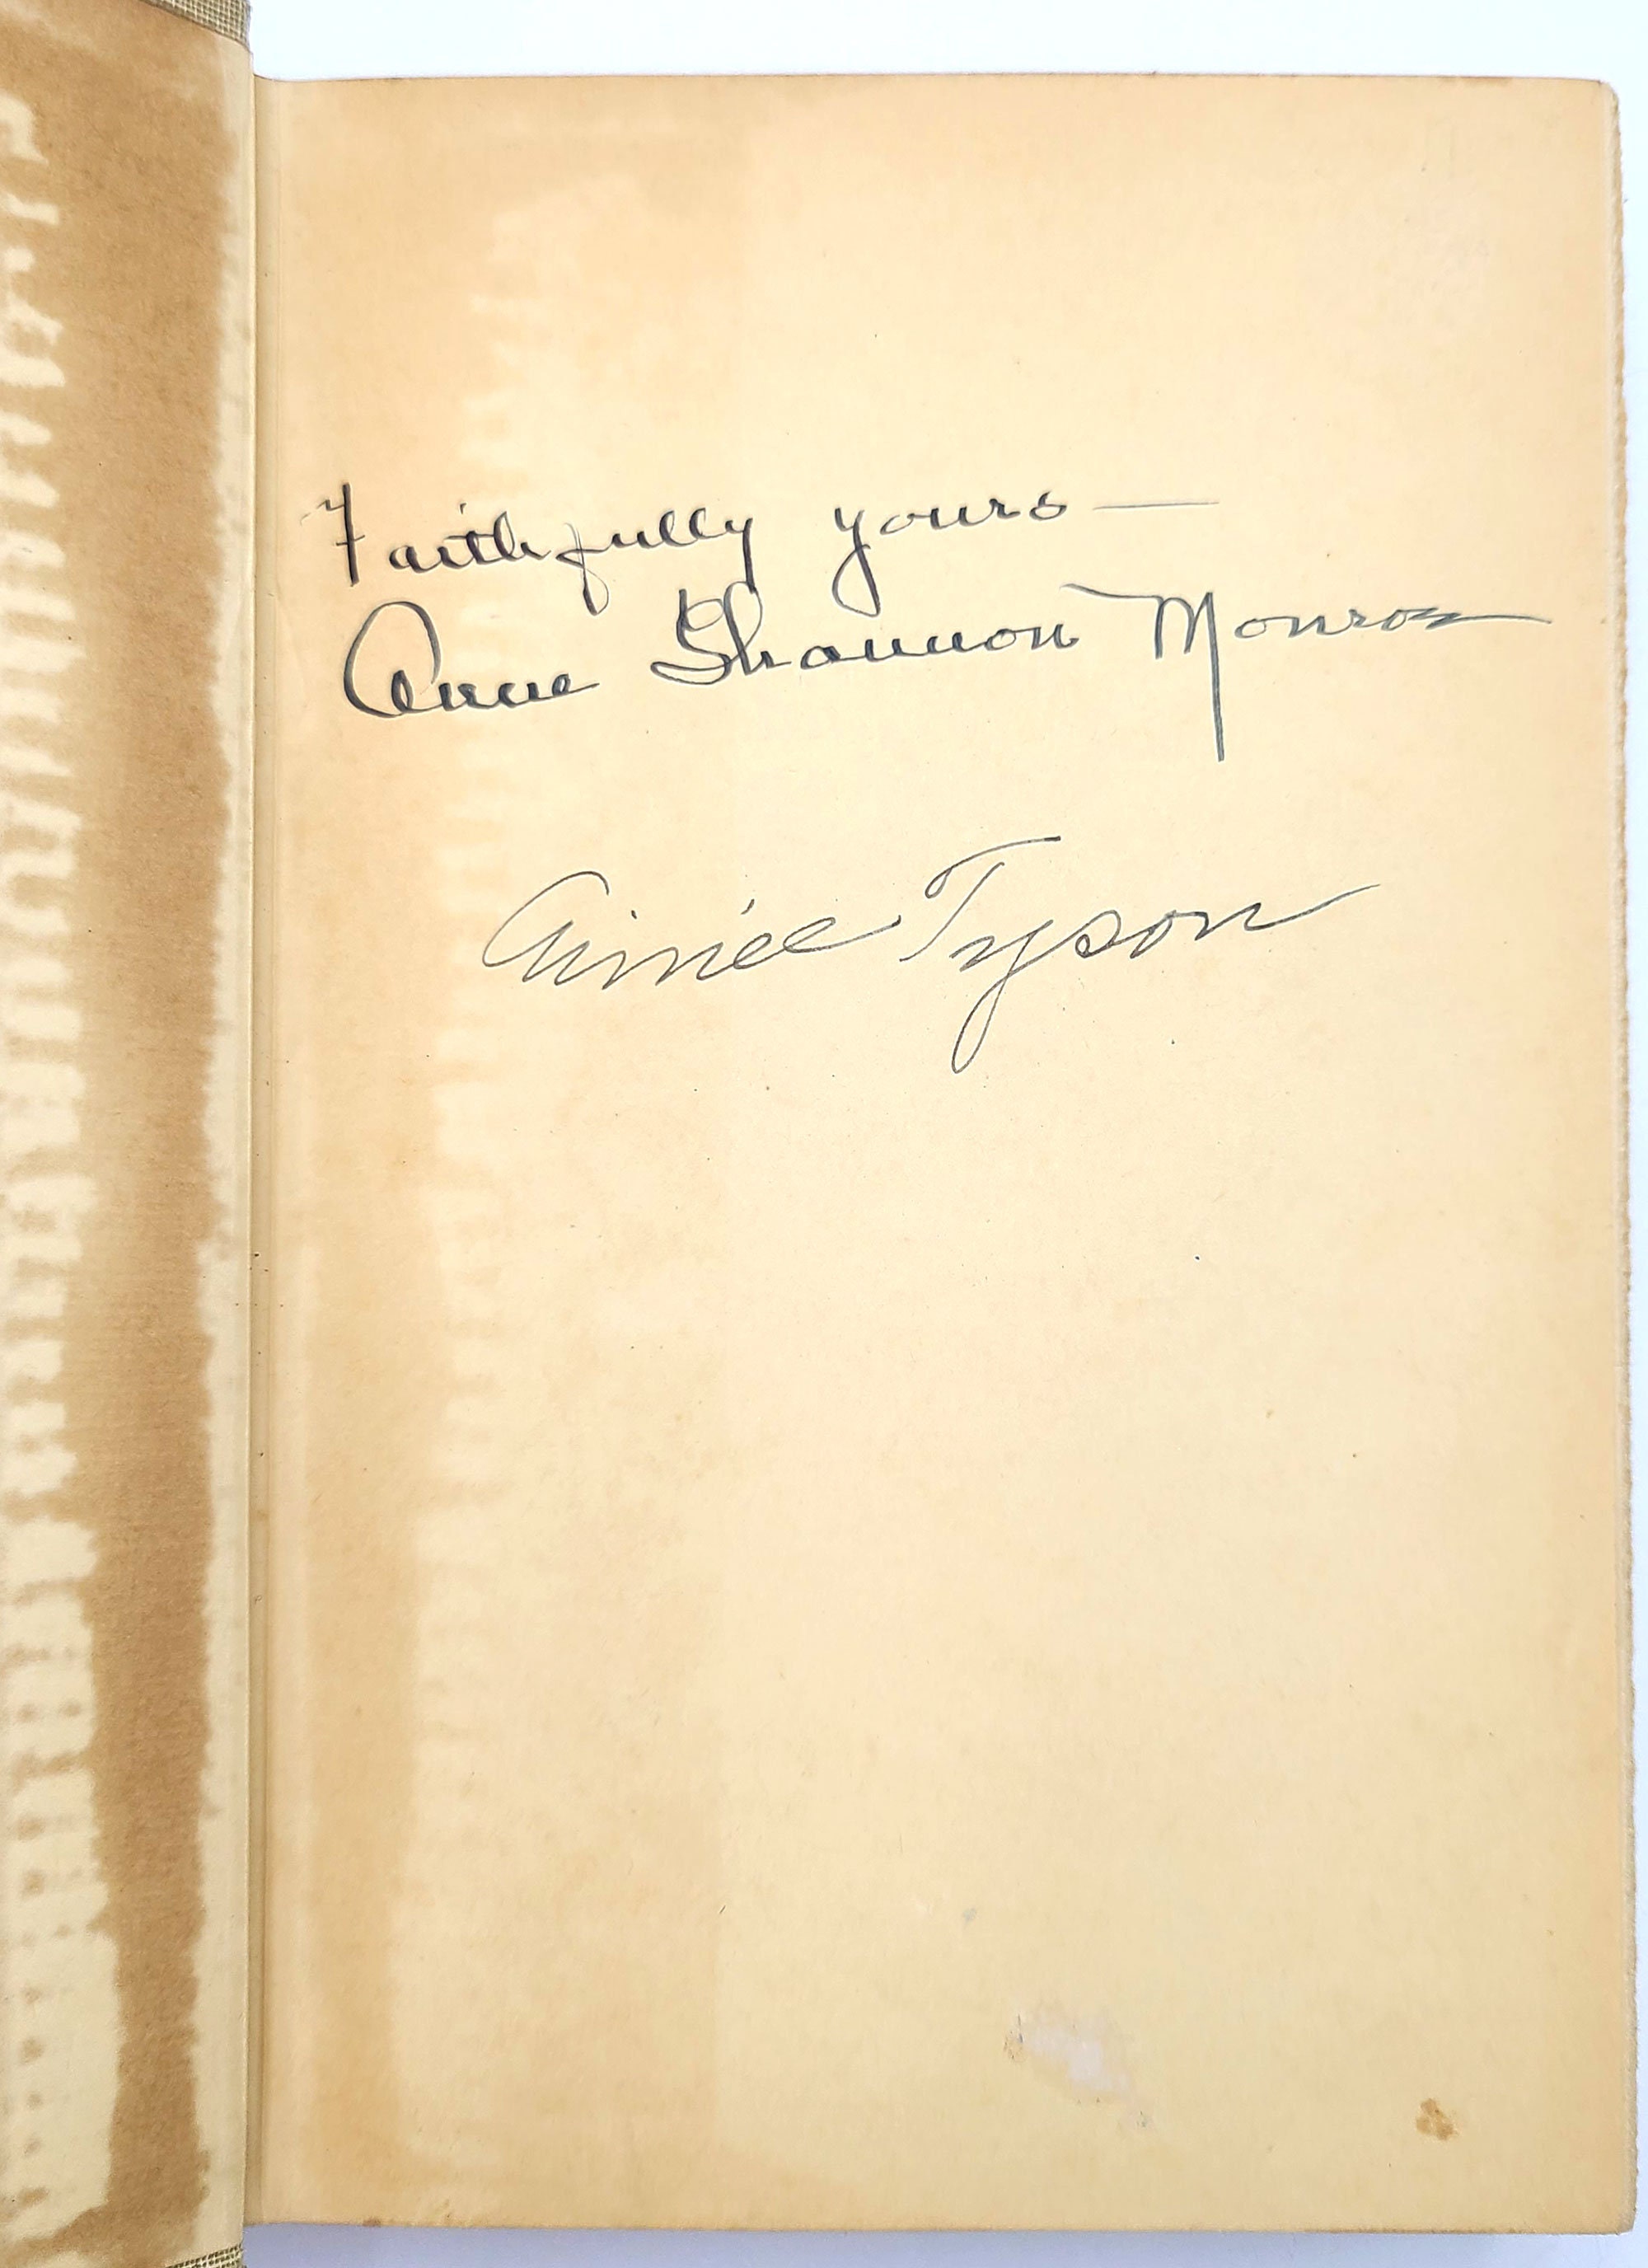 Faithfully yours—
Anne Shannon Monroe
Aimée Tyson